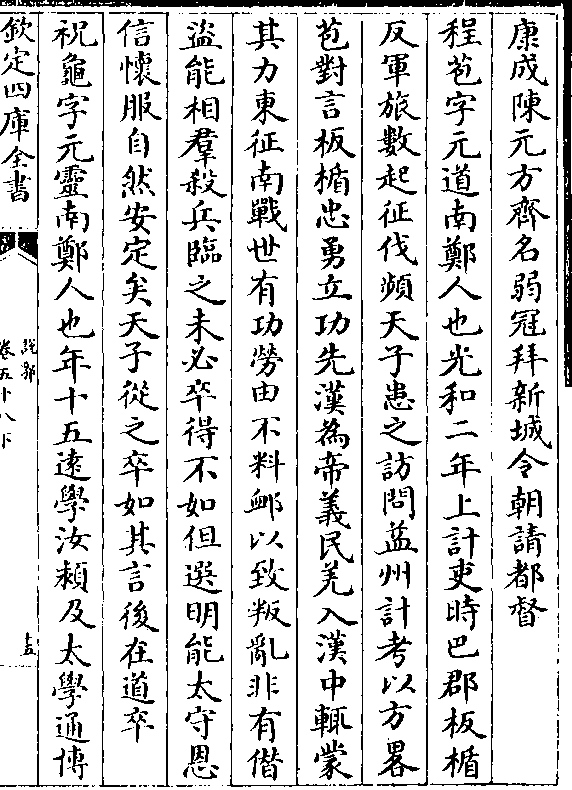 康成陳元方齊名弱冠拜新城令朝請都督
程苞字元道南鄭人也光和二年上計吏時巴郡板楯
反軍旅數起征伐頻天子患之訪問益州計考以方畧
苞對言板楯忠勇立功先漢為帝義民羌入漢中輒蒙
其力東征南戰世有功勞由不料䘏以致叛亂非有僭
盜能相羣殺兵臨之未必卒得不如但選明能太守恩
信懷服自然安定矣天子從之卒如其言後在道卒
祝龜字元靈南鄭人也年十五遠學汝潁及太學通博
欽定四庫全書
說郛
卷五十八下